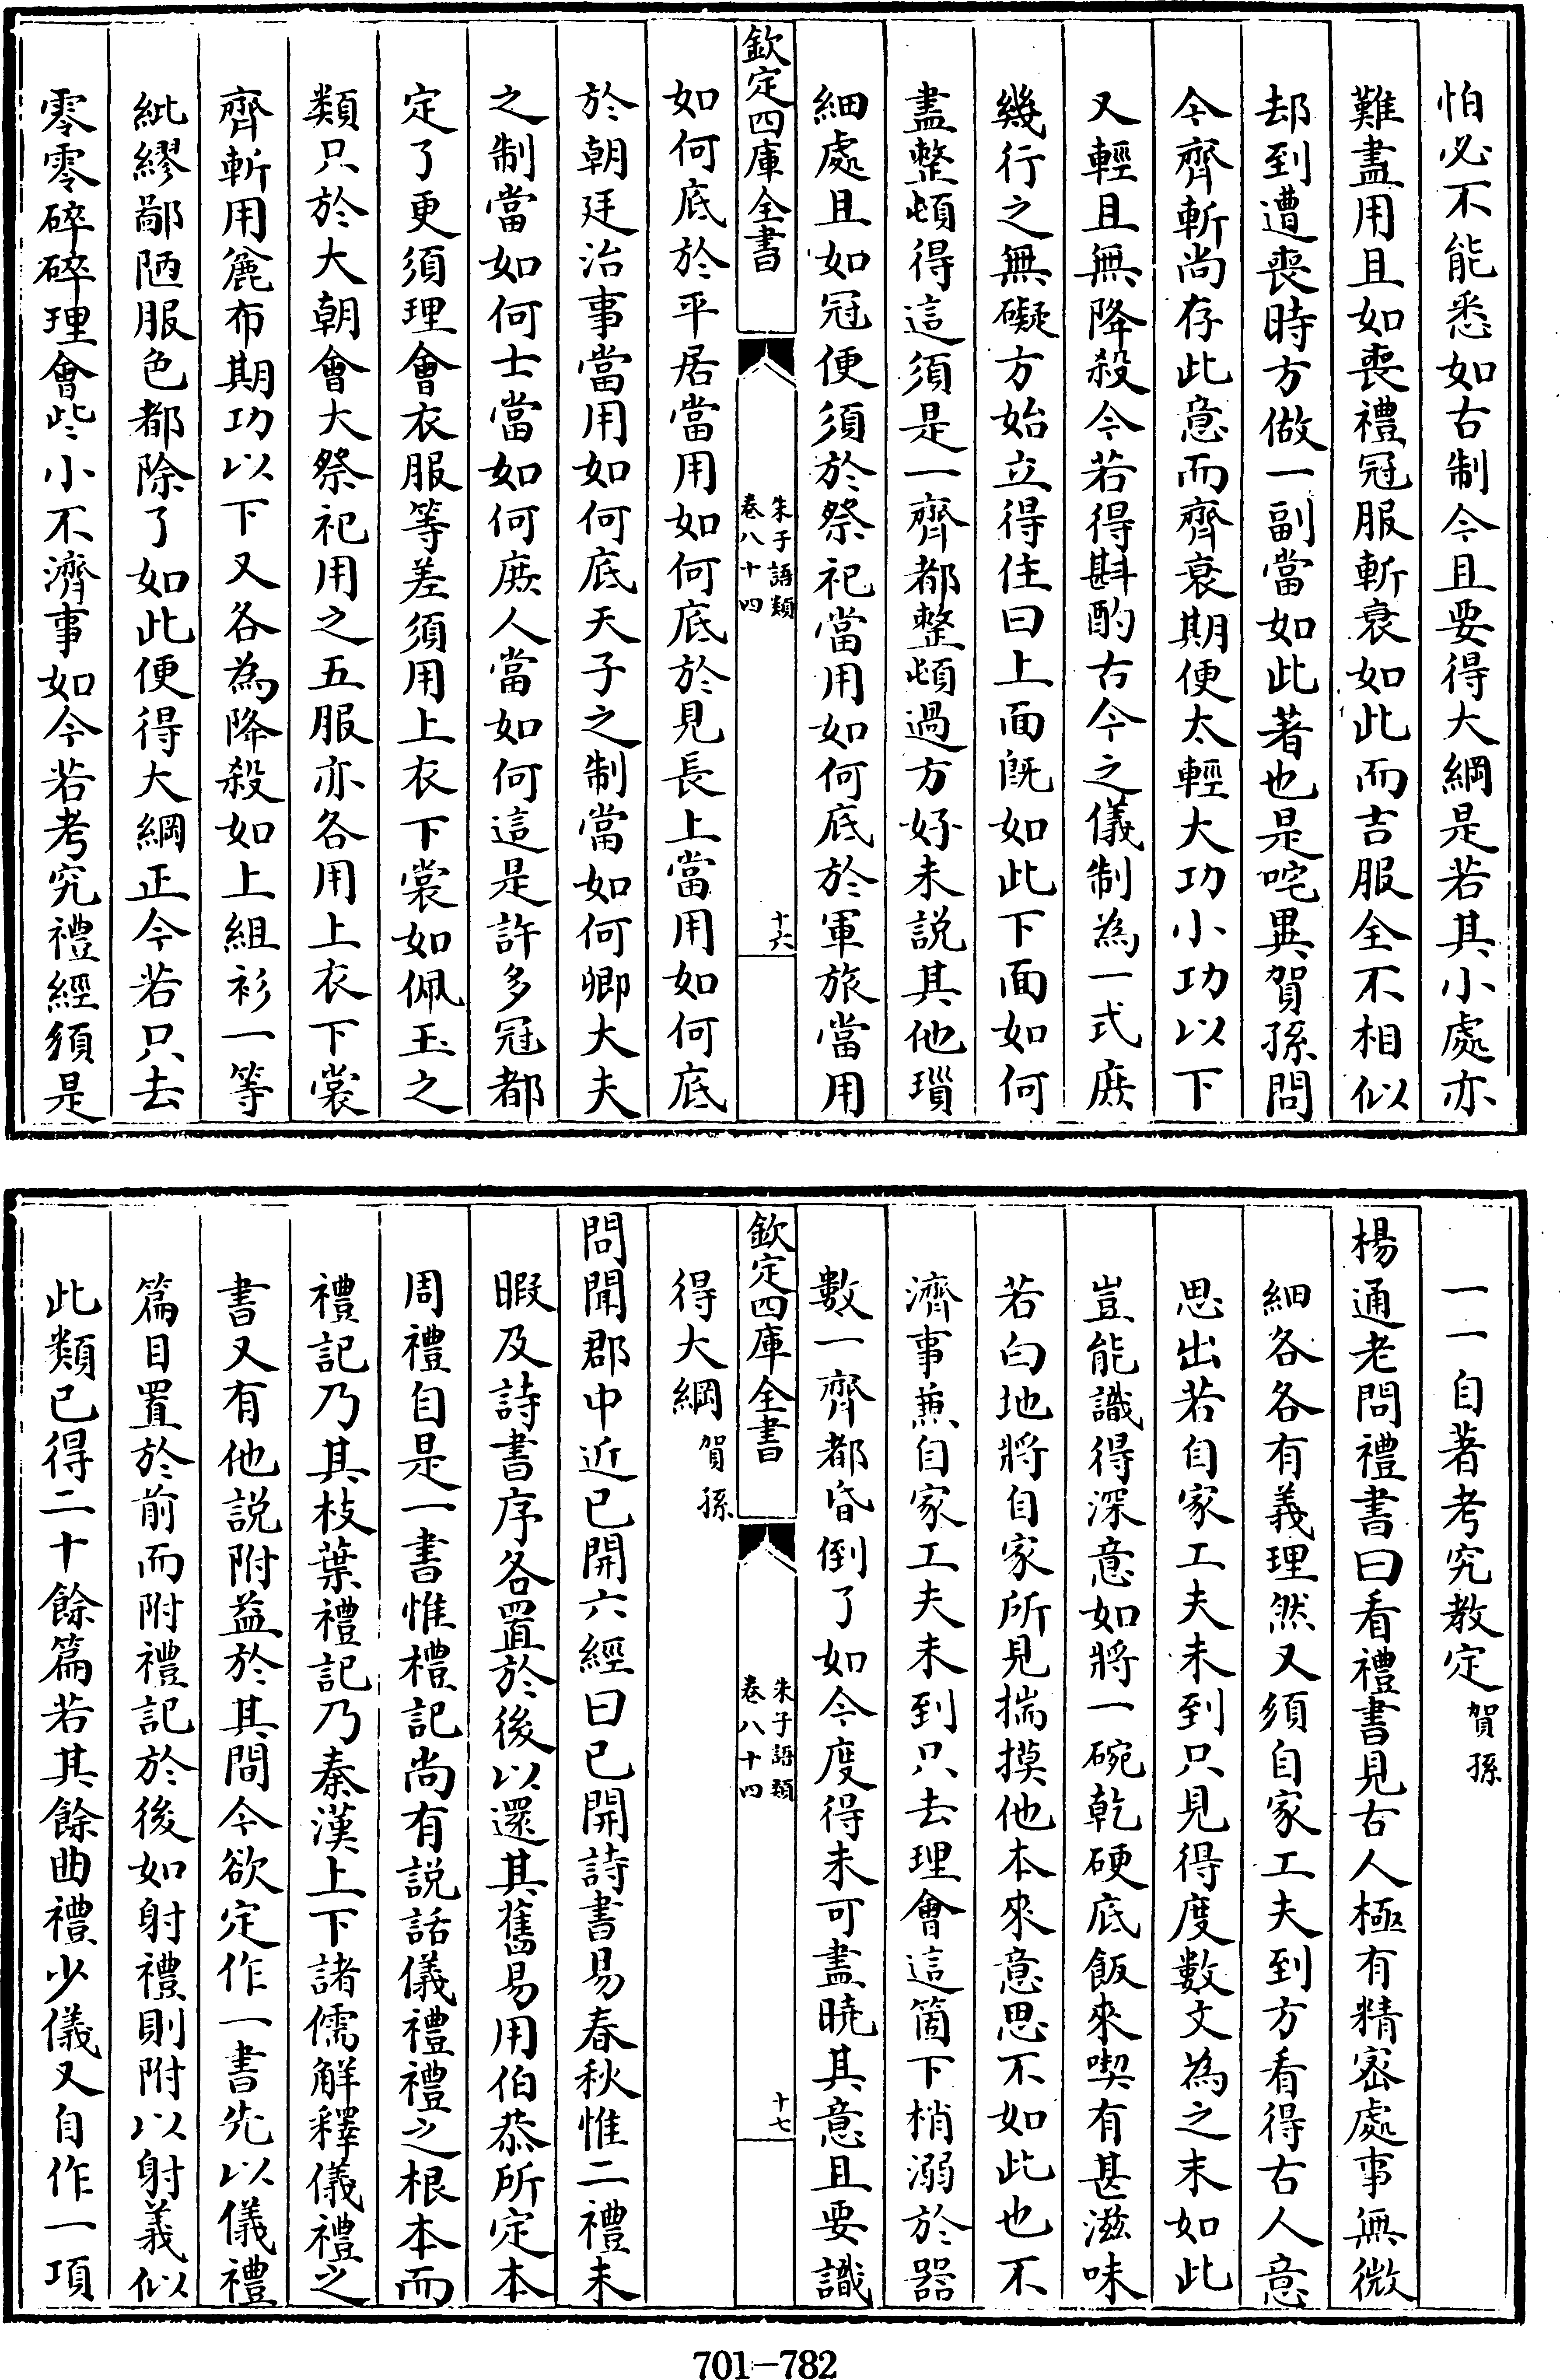 怕必不能悉如古制今且要得大綱是若其小處亦
難盡用且如喪禮冠服斬衰如此而吉服全不相似
却到遭喪時方做一副當如此著也是咤異賀孫問
今齊斬尚存此意而齊衰期便太輕大功小功以下
又輕且無降殺今若得斟酌古今之儀制為一式庶
幾行之無礙方始立得住曰上面既如此下面如何
盡整頓得這須是一齊都整頓過方好未説其他瑣
細處且如冠便須於祭祀當用如何底於軍旅當用
欽定四庫全書
朱子語類
卷八十四
十六
如何底於平居當用如何底於見長上當用如何底
於朝廷治事當用如何底天子之制當如何卿大夫
之制當如何士當如何庶人當如何這是許多冠都
定了更須理會衣服等差須用上衣下裳如佩玉之
類只於大朝會大祭祀用之五服亦各用上衣下裳
齊斬用麄布期功以下又各為降殺如上組衫一等
紕繆鄙陋服色都除了如此便得大綱正今若只去
零零碎碎理會些小不濟事如今若考究禮經須是
一一自著考究教定賀孫
楊通老問禮書曰看禮書見古人極有精宻處事無微
細各各有義理然又須自家工夫到方看得古人意
思出若自家工夫未到只見得度數文為之末如此
豈能識得深意如將一碗乾硬底飯來喫有甚滋味
若白地將自家所見揣摸他本來意思不如此也不
濟事兼自家工夫未到只去理會這箇下梢溺於器
數一齊都昏倒了如今度得未可盡曉其意且要識
欽定四庫全書
朱子語類
卷八十四
十七
得大綱賀孫
問聞郡中近已開六經曰已開詩書易春秋惟二禮未
暇及詩書序各置於後以還其舊易用伯恭所定本
周禮自是一書惟禮記尚有説話儀禮禮之根本而
禮記乃其枝葉禮記乃秦漢上下諸儒解釋儀禮之
書又有他説附益於其間今欲定作一書先以儀禮
篇目置於前而附禮記於後如射禮則附以射義似
此類已得二十餘篇若其餘曲禮少儀又自作一項
701-782